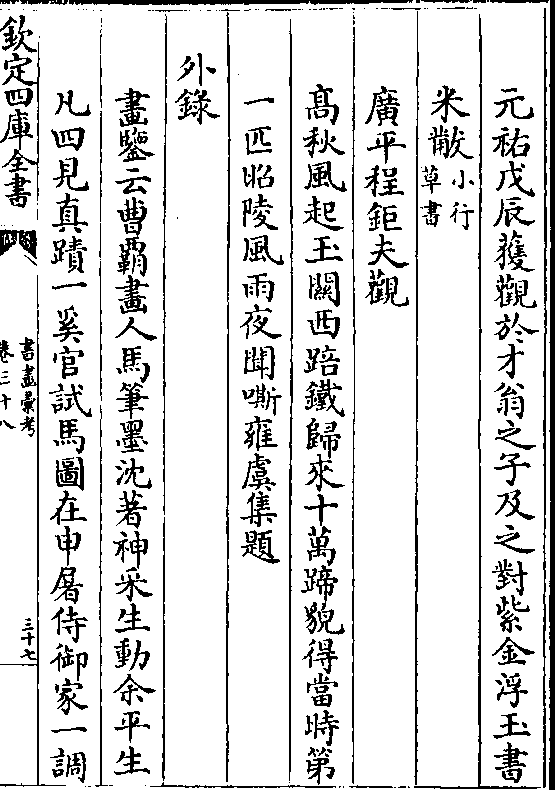 元祐戊辰獲觀於才翁之子及之對紫金浮玉書
米黻小行
草書
廣平程鉅夫觀
髙秋風起玉闗西踣鐵歸來十萬蹄貌得當時第
一匹昭陵風雨夜聞嘶雍虞集題
外錄
畫鑒云曹霸畫人馬筆墨沈著神采生動余平生
凡四見真蹟一奚官試馬圖在申屠侍御家一調
欽定四庫全書
書畫彚考
卷三十八
三十七